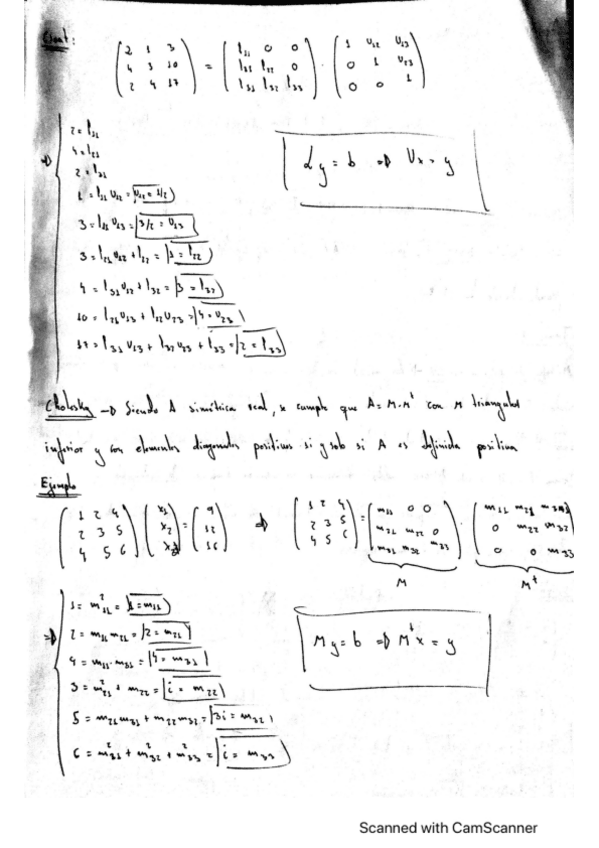 Crout:
( 2 1 3 ; 4 3 10 ; 2 4 17 ) = ( l11 0 0 ; l21 l22 0 ; l31 l32 l33 ) · ( 1 u12 u13 ; 0 1 u23 ; 0 0 1 )
2 = l11
4 = l21
2 = l31
1 = l11 u12 = u12 = 1/2
3 = l11 u13 = 3/2 = u13
3 = l21 u12 + l22 = 1 = l22
4 = l31 u12 + l32 = 3 = l32
10 = l21 u13 + l22 u23 = 4 = u23
17 = l31 u13 + l32 u23 + l33 = 2 = l33
Ly = b ⇒ Ux = y
Cholesky → Siendo A simétrica real, se cumple que A = M·M^t con M triangular
inferior y con elementos diagonales positivos si y solo si A es definida positiva
Ejemplo
( 1 2 4 ; 2 3 5 ; 4 5 6 ) ( x1 ; x2 ; x3 ) = ( 9 ; 12 ; 16 ) ⇒ ( 1 2 4 ; 2 3 5 ; 4 5 6 ) = ( m11 0 0 ; m21 m22 0 ; m31 m32 m33 ) · ( m11 m21 m31 ; 0 m22 m32 ; 0 0 m33 )
M M^t
1 = m11² = 1 = m11
2 = m11 m21 = 2 = m21
4 = m11 · m31 = 4 = m31
3 = m21² + m22 = i = m22
5 = m21 m31 + m22 m32 = 3i = m32
6 = m31² + m32² + m33² = i = m33
My = b ⇒ M^t x = y
Scanned with CamScanner